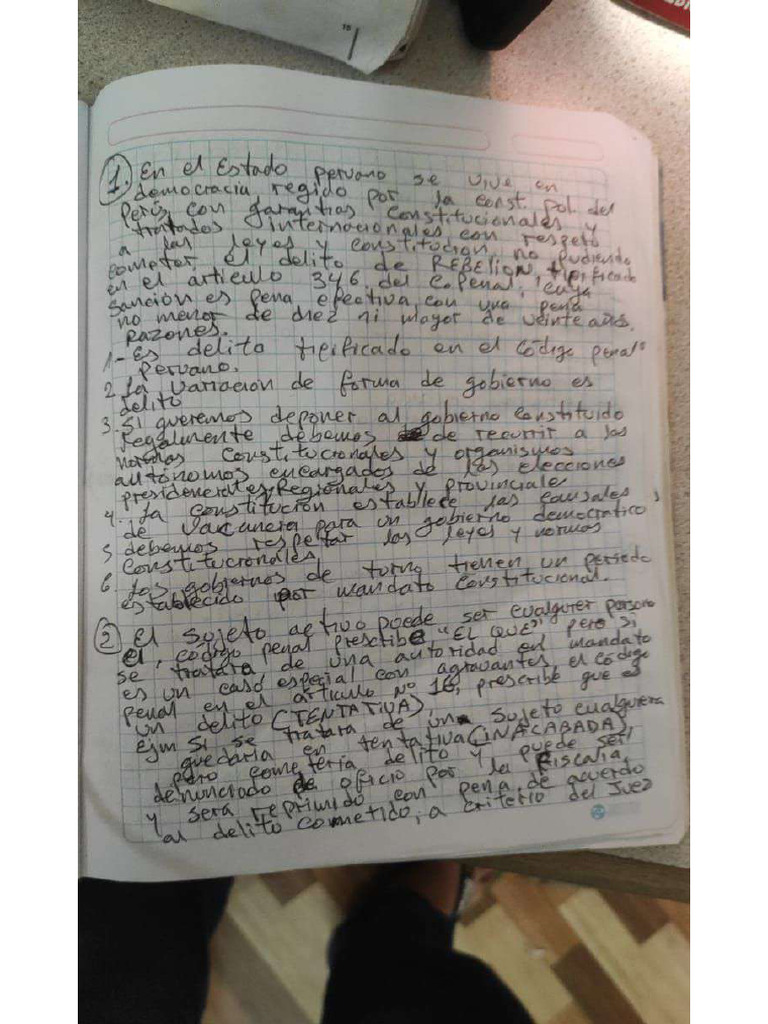 15
1. En el Estado peruano se vive en
democracia, regido por la const. pol. del
Perú, con garantias constitucionales y
tratados internacionales, con respeto
a las leyes y constitución, no pudiendo
cometer el delito de REBELION, tipificado
en el articulo 346 del C.Penal, cuya
sanción es pena efectiva, con una pena
no menor de diez ni mayor de veinte años.
RAZONES.
1.- Es delito tipificado en el Código penal
Peruano.
2. La variación de forma de gobierno es
delito
3. Si queremos deponer al gobierno constituido
legalmente debemos de recurrir a las
normas constitucionales y organismos
autónomos encargados de las elecciones
presidenciales, Regionales y provinciales
4. La constitución establece las causales
de vacancia para un gobierno democratico
5. debemos respetar las leyes y normas
constitucionales.
6. Los gobiernos de turno tienen un periodo
establecido por mandato constitucional.
2 El sujeto activo puede ser cualquier persona
El, código penal prescribe "EL QUE" pero si
se tratara de una autoridad en mandato
es un caso especial con agravantes, el código
penal en el articulo Nº 16, prescribe que es
un delito (TENTATIVA),
Ejm Si se tratara de un sujeto cualquiera
quedaria en tentativa (INACABADA),
pero cometeria delito y puede ser
denunciado de oficio por la Fiscalia,
y será reprimido con pena de acuerdo
al delito cometido, a criterio del Juez